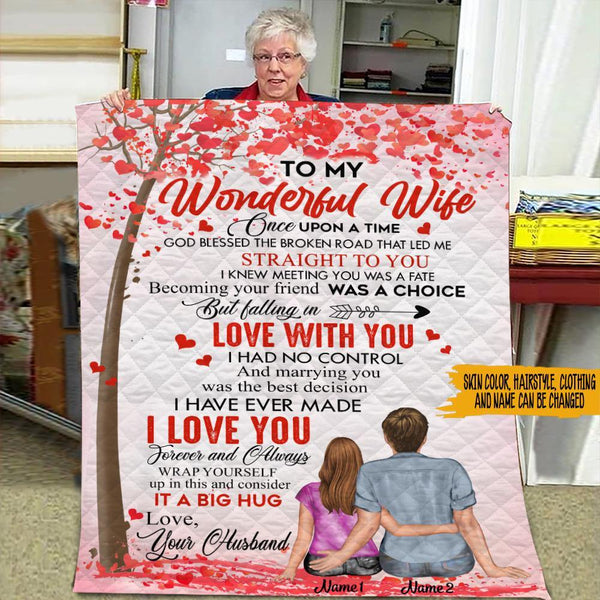 TO MY
Wonderful Wife
Once UPON A TIME
GOD BLESSED THE BROKEN ROAD THAT LED ME
STRAIGHT TO YOU
I KNEW MEETING YOU WAS A FATE
Becoming your friend WAS A CHOICE
But falling in
LOVE WITH YOU
I HAD NO CONTROL
And marrying you
was the best decision
I HAVE EVER MADE
I LOVE YOU
Forever and Always
WRAP YOURSELF
up in this and consider
IT A BIG HUG
Love,
Your Husband
Name 1
Name 2
SKIN COLOR, HAIRSTYLE, CLOTHING
AND NAME CAN BE CHANGED